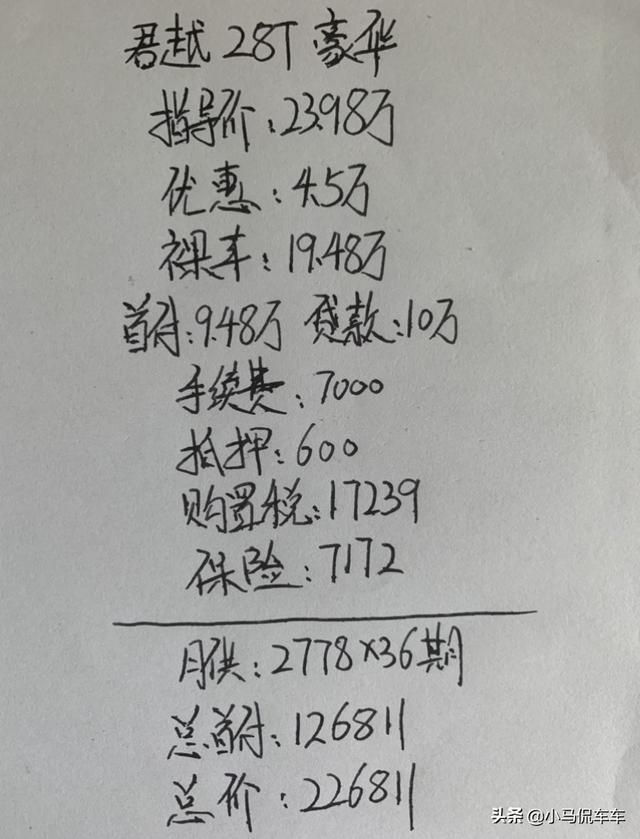 君越 28T 豪华
指导价：23.98万
优惠：4.5万
裸车：19.48万
首付：9.48万 贷款：10万
手续费：7000
抵押：600
购置税：17239
保险：7172
月供：2778×36期
总首付：126811
总价：226811
头条 @小马侃车车